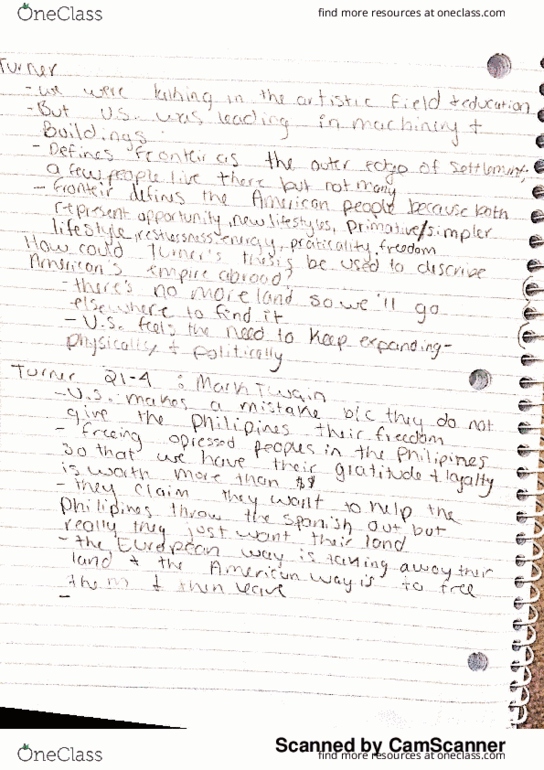 OneClass
find more resources at oneclass.com
Turner
- we were lacking in the artistic field + education
- But U.S. was leading in machinery +
Buildings
- Defines Fronteir as the outer edge of settlement,
a few people live there but not many
- fronteir defines the American people because both
represent opportunity, new lifestyles, primative/simpler
lifestyle, restlessness energy, praticality, freedom
How could Turner's thesis be used to describe
American's empire abroad?
- there's no more land so we'll go
elsewhere to find it
- U.S. feels the need to keep expanding -
physically + politically
Turner 21-4 : Mark Twain
- U.S. makes a mistake b/c they do not
give the Philipines their freedom
- freeing opressed peoples in the Philipines
so that we have their gratitude + loyalty
is worth more than $$
- they claim they want to help the
Philipines throw the spanish out but
really they just want their land
- the European way is taking away their
land + the American way is to free
them + then leave
-
Scanned by CamScanner
OneClass
find more resources at oneclass.com